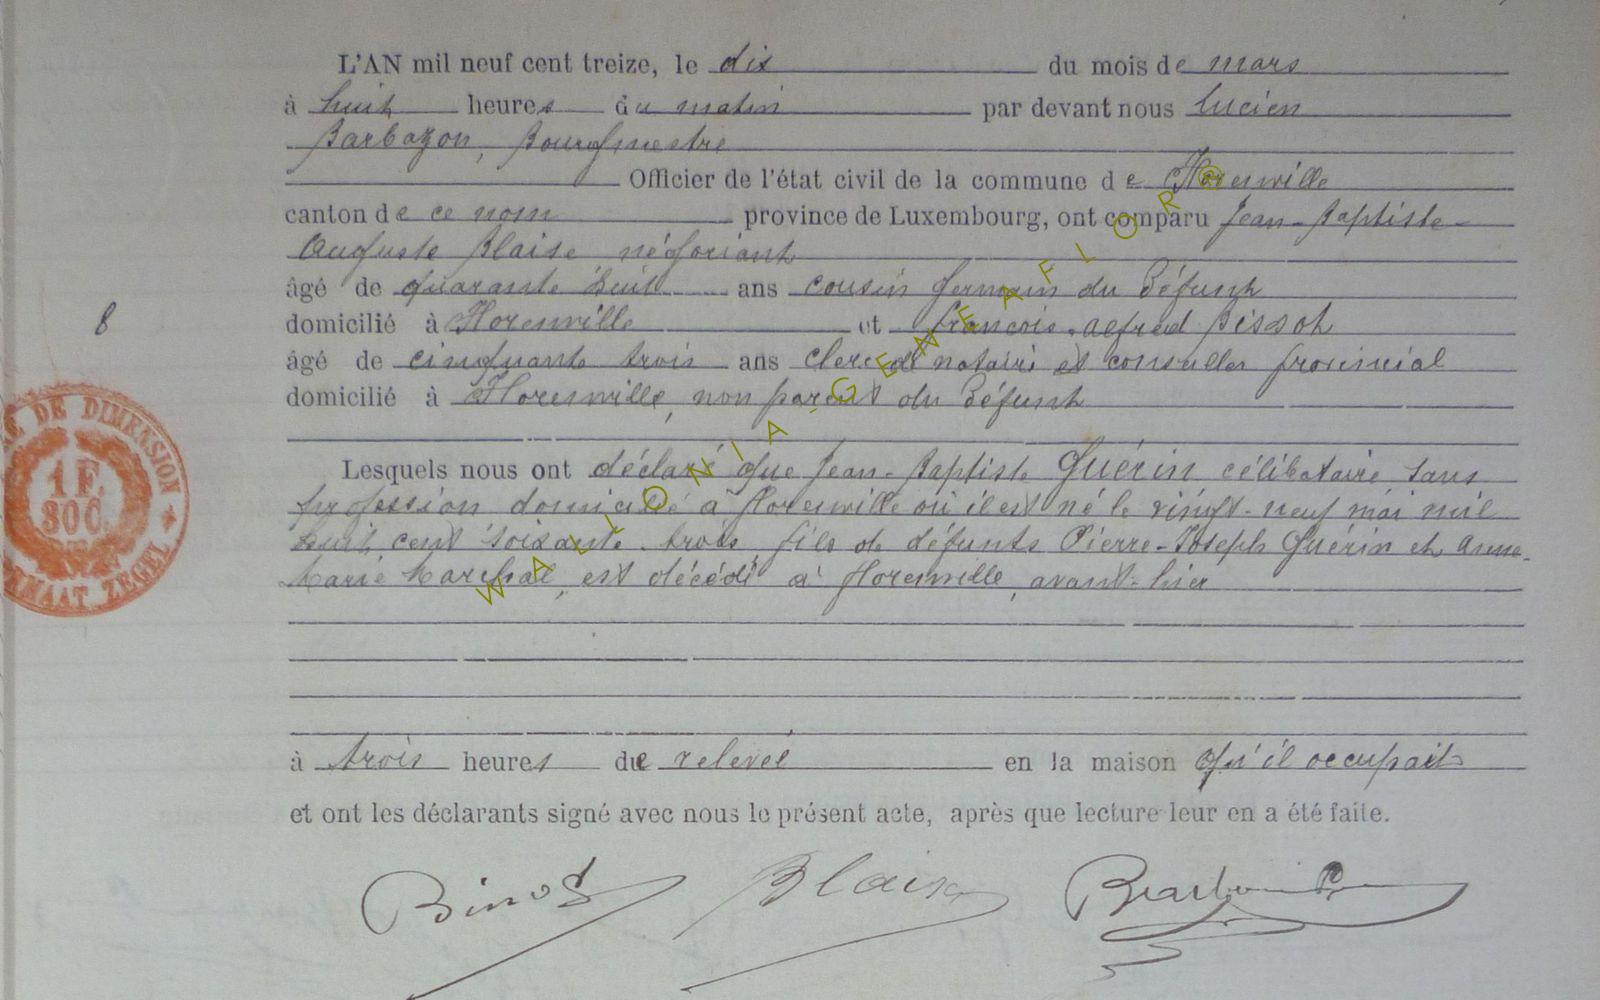 L'AN mil neuf cent treize, le dix du mois de mars
à huit heures du matin par devant nous Lucien
Barbazon, Bourgmestre
Officier de l'état civil de la commune de Florenville
canton de ce nom province de Luxembourg, ont comparu Jean-Baptiste-
Auguste Blaise négociant
âgé de quarante huit ans cousin germain du défunt
8
domicilié à Florenville et François-Alfred
âgé de cinquante trois ans clerc de notaire et conseiller provincial
domicilié à Florenville, non parent du défunt
Lesquels nous ont déclaré que Jean-Baptiste Guérin célibataire sans
profession domicilié à Florenville où il est né le vingt-neuf mai mil
huit cent soixante-trois, fils de défunts Pierre-Joseph Guérin et Anne-
Marie Maréchal, est décédé à Florenville, avant-hier
DE DIMENSION
1 F.
30 C.
ZEGEL
à trois heures de relevée en la maison qu'il occupait
et ont les déclarants signé avec nous le présent acte, après que lecture leur en a été faite.
Blaise
WALLONIA.GENEAFLOR@